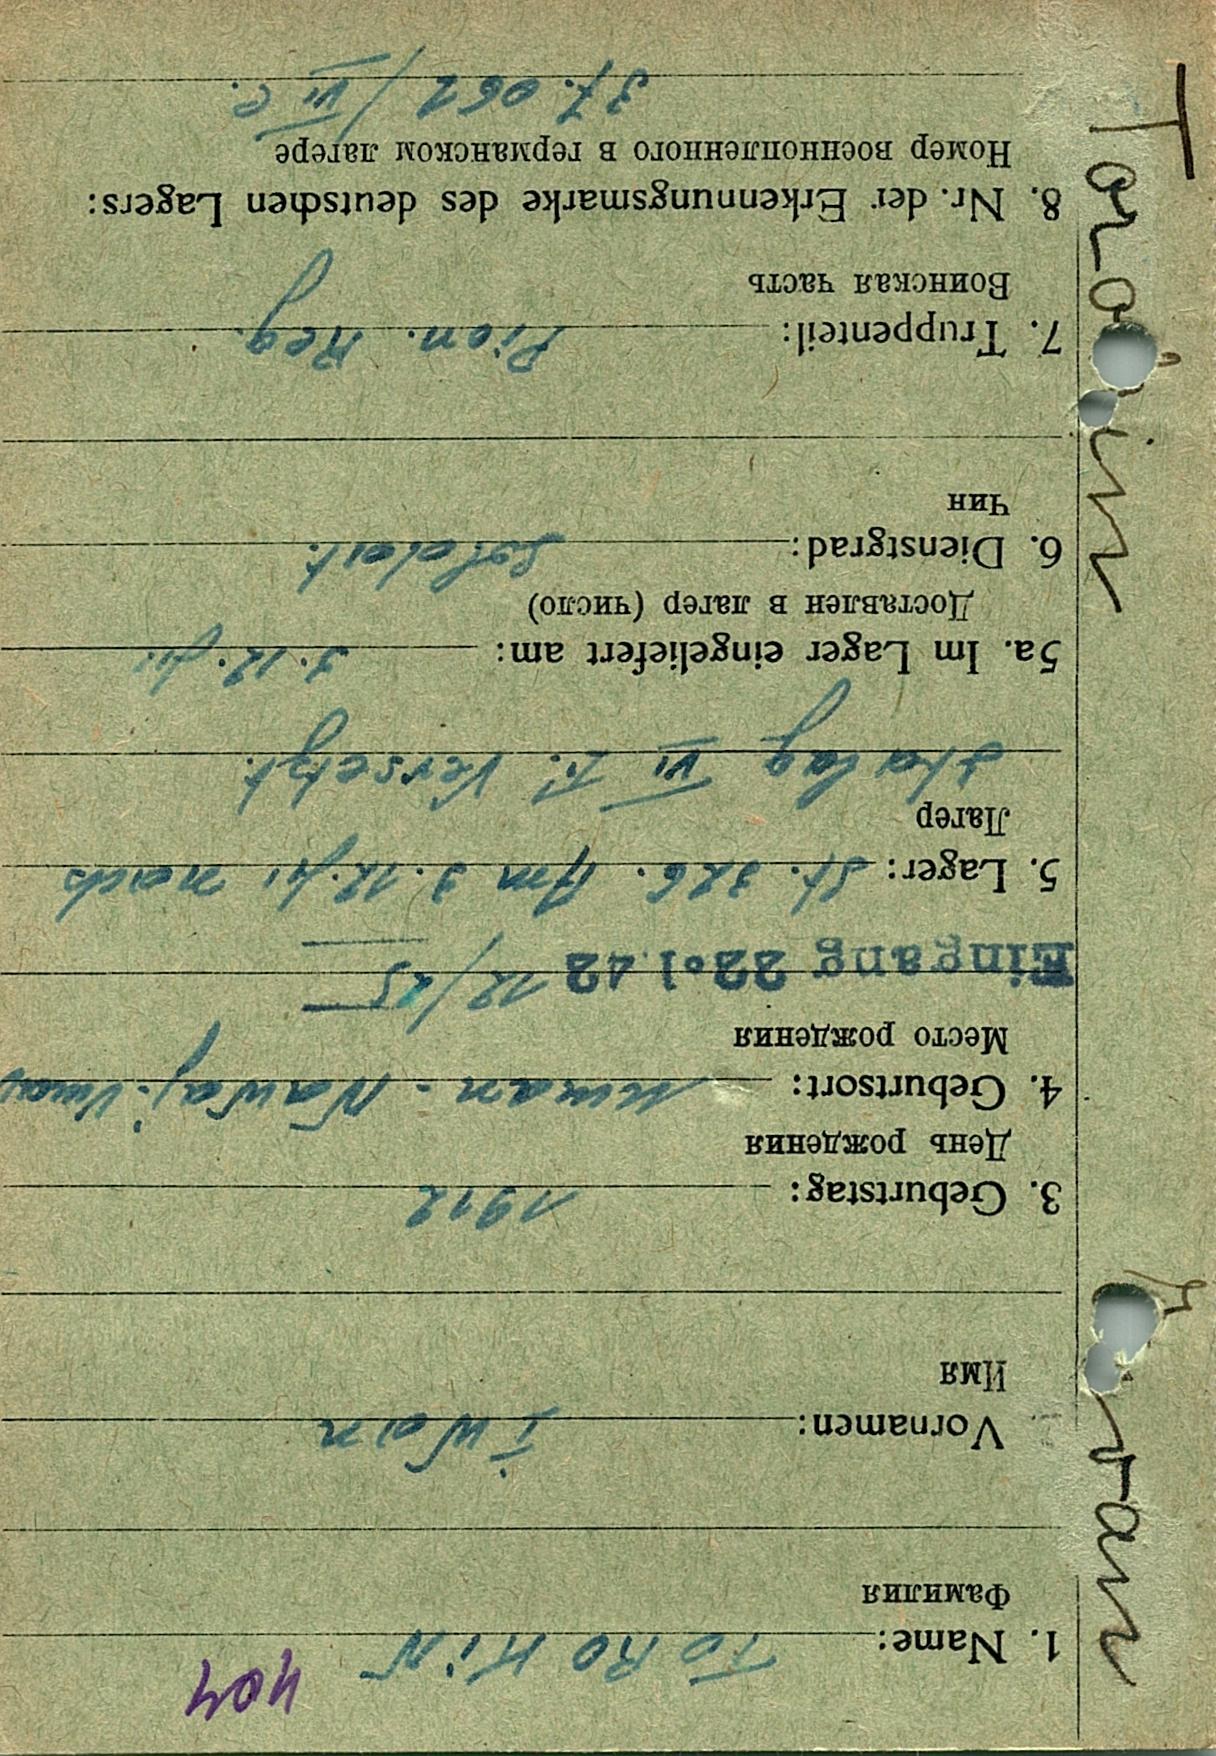 404
1. Name: ToROKiN
Фамилия
Vornamen: iwan
Имя
3. Geburtstag: 1912
День рождения
4. Geburtsort:
Место рождения
Eingang 22.1.42 12/25
5. Lager: St. 326. Am 3.12.41 nach
Лагер
Stalag VI Versetzt.
5a. Im Lager eingeliefert am: 3.12.41.
Доставлен в лагер (число)
6. Dienstgrad: Soldat.
Чин
7. Truppenteil: Pion. Reg.
Воинская часть
8. Nr. der Erkennungsmarke des deutschen Lagers:
Номер военнопленного в германском лагере
37.062/VI C.